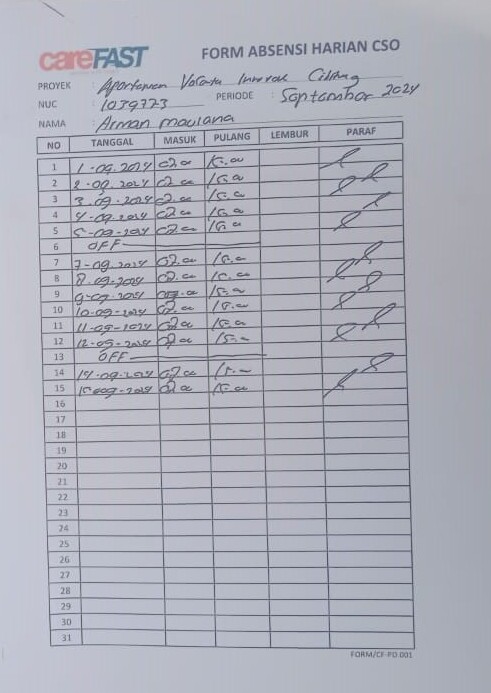 careFAST
FORM ABSENSI HARIAN CSO
PROYEK : Apartemen
NUC : 1039773 PERIODE : September 2024
NAMA : Arman maulana
NO TANGGAL MASUK PULANG LEMBUR PARAF
1 1-09.2024 07.00 15.00
2 2-09.2024 07.00 15.00
3 3.09.2024 07.00 15.00
4 4-09-2024 07.00 15.00
5 5-09-2024 07.00 15.00
6 OFF
7 7-09.2024 07.00 15.00
8 8.09.2024 07.00 15.00
9 9-09.2024 07.00 15.00
10 10-09-2024 07.00 15.00
11 11-09-2024 07.00 15.00
12 12-09-2024 07.00 15.00
13 OFF
14 14-09.2024 07.00 15.00
15 15-09-2024 07.00 15.00
16
17
18
19
20
21
22
23
24
25
26
27
28
29
30
31
FORM/CF-PD 001